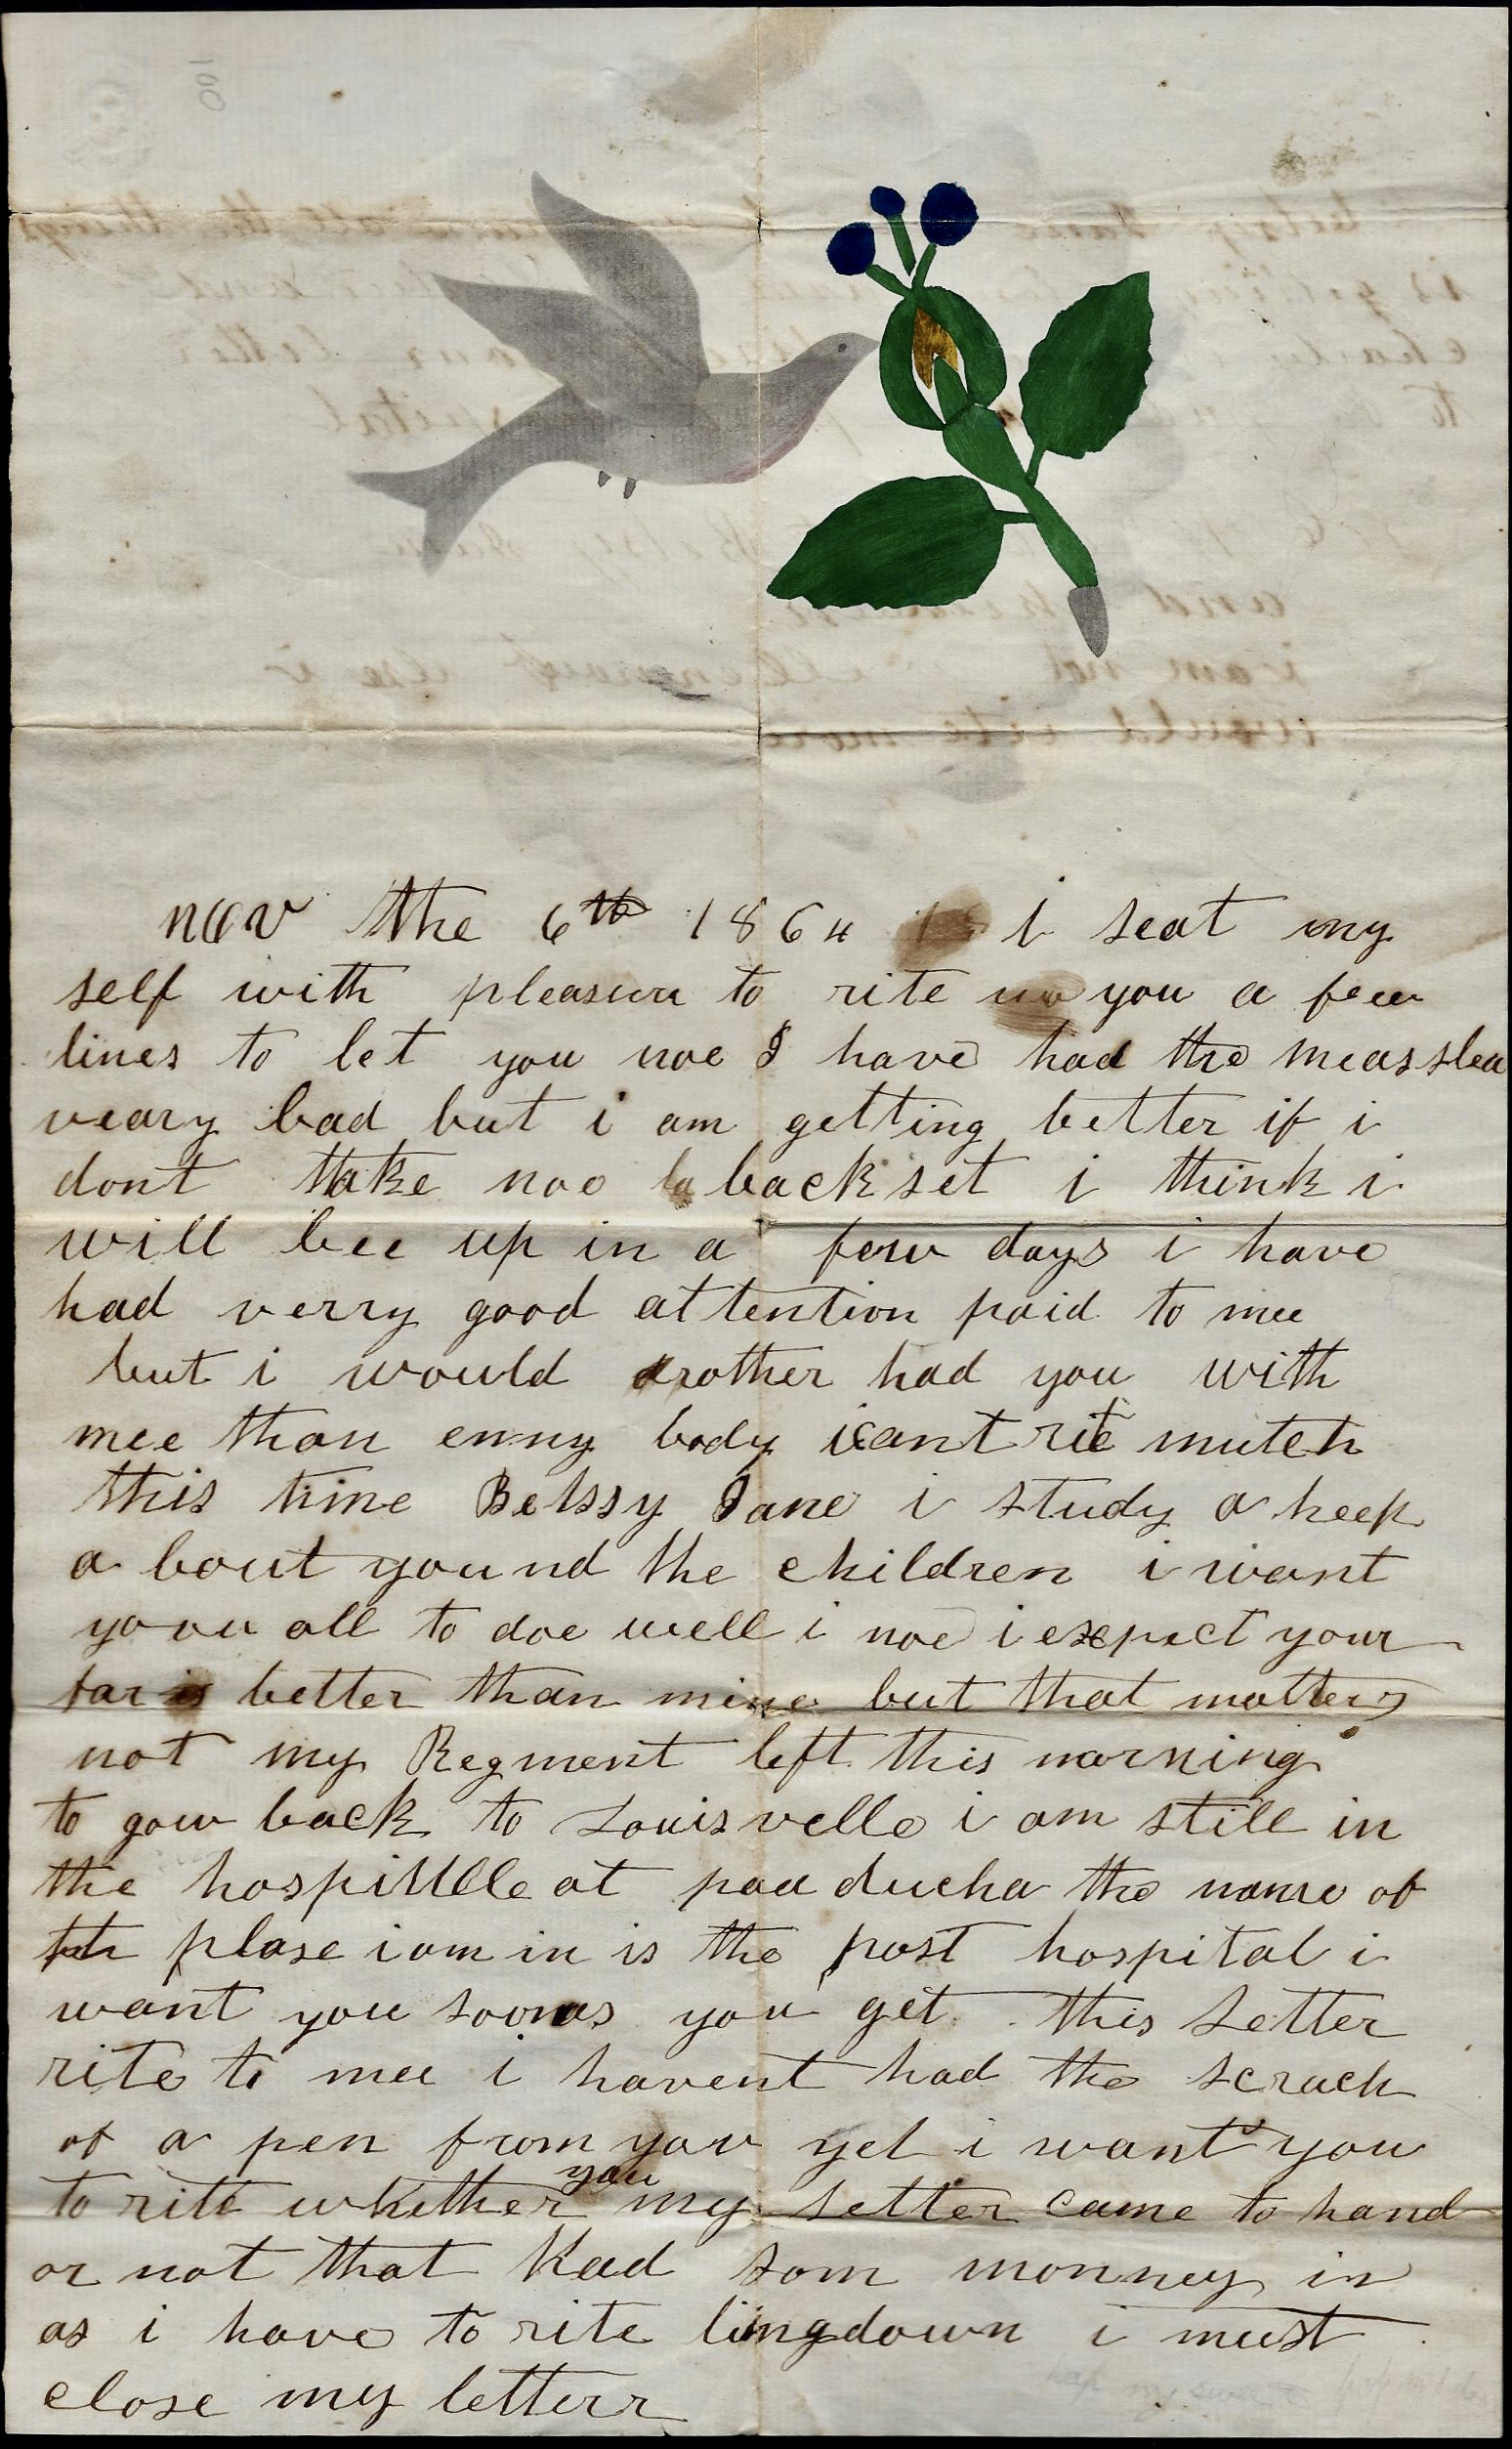 nov the 6th 1864 i seat my
self with pleasure to rite you a few
lines to let you noe I have had the meassles
veary bad but i am getting better if i
dont take noo back set i think i
will bee up in a few days i have
had verry good attention paid to mee
but i would rother had you with
mee than enny body icant rite mutch
this time Betssy Jane i study a heep
a bout you nd the children i want
yoou all to doe well i noe i expect your
far is better than mine but that matters
not my Regment left this morning
to gow back to Louisvelle i am still in
the hospittlle at paa ducha the name of
th plase i am in is the post hospital i
want you soonas you get this Letter
rite to mee i havent had the scrach
of a pen from you yet i want you
you
to rite whether my Letter came to hand
or not that had som monney in
as i have to rite lingdown i must
close my letterr